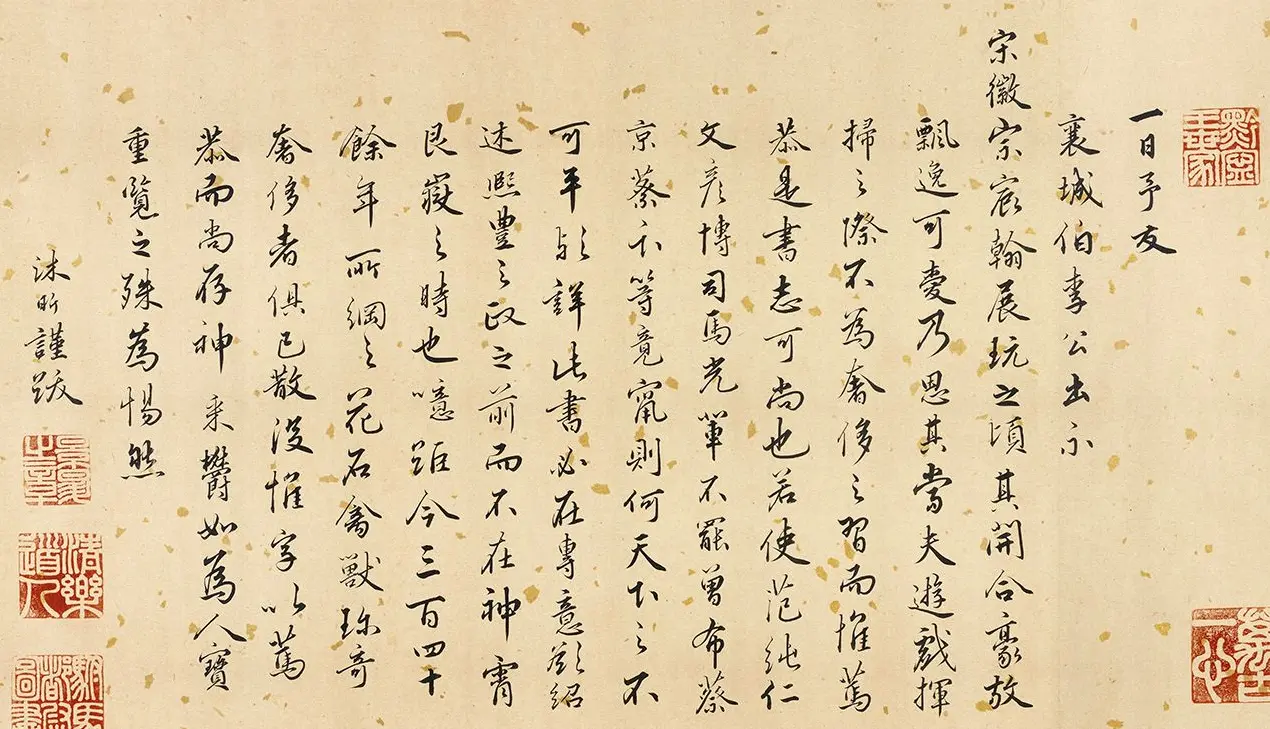 一日予友
襄城伯李公出示
宋徽宗宸翰展玩之頃其開合豪放
飄逸可愛乃思其當夫遊戲揮
掃之際不為奢侈之習而惟篤
恭是書志可尚也若使范純仁
文彥博司馬光輩不罷曾布蔡
京蔡卞等竟竄則何天下之不
可平歟詳此書必在專意欲紹
述熙豐之政之前而不在神霄
艮嶽之時也噫距今三百四十
餘年所綱之花石禽獸珍奇
奢侈者俱已散沒惟字以篤
恭而尚存神采欝如為人寶
重覽之殊為惕然
沐昕謹跋
清樂道人